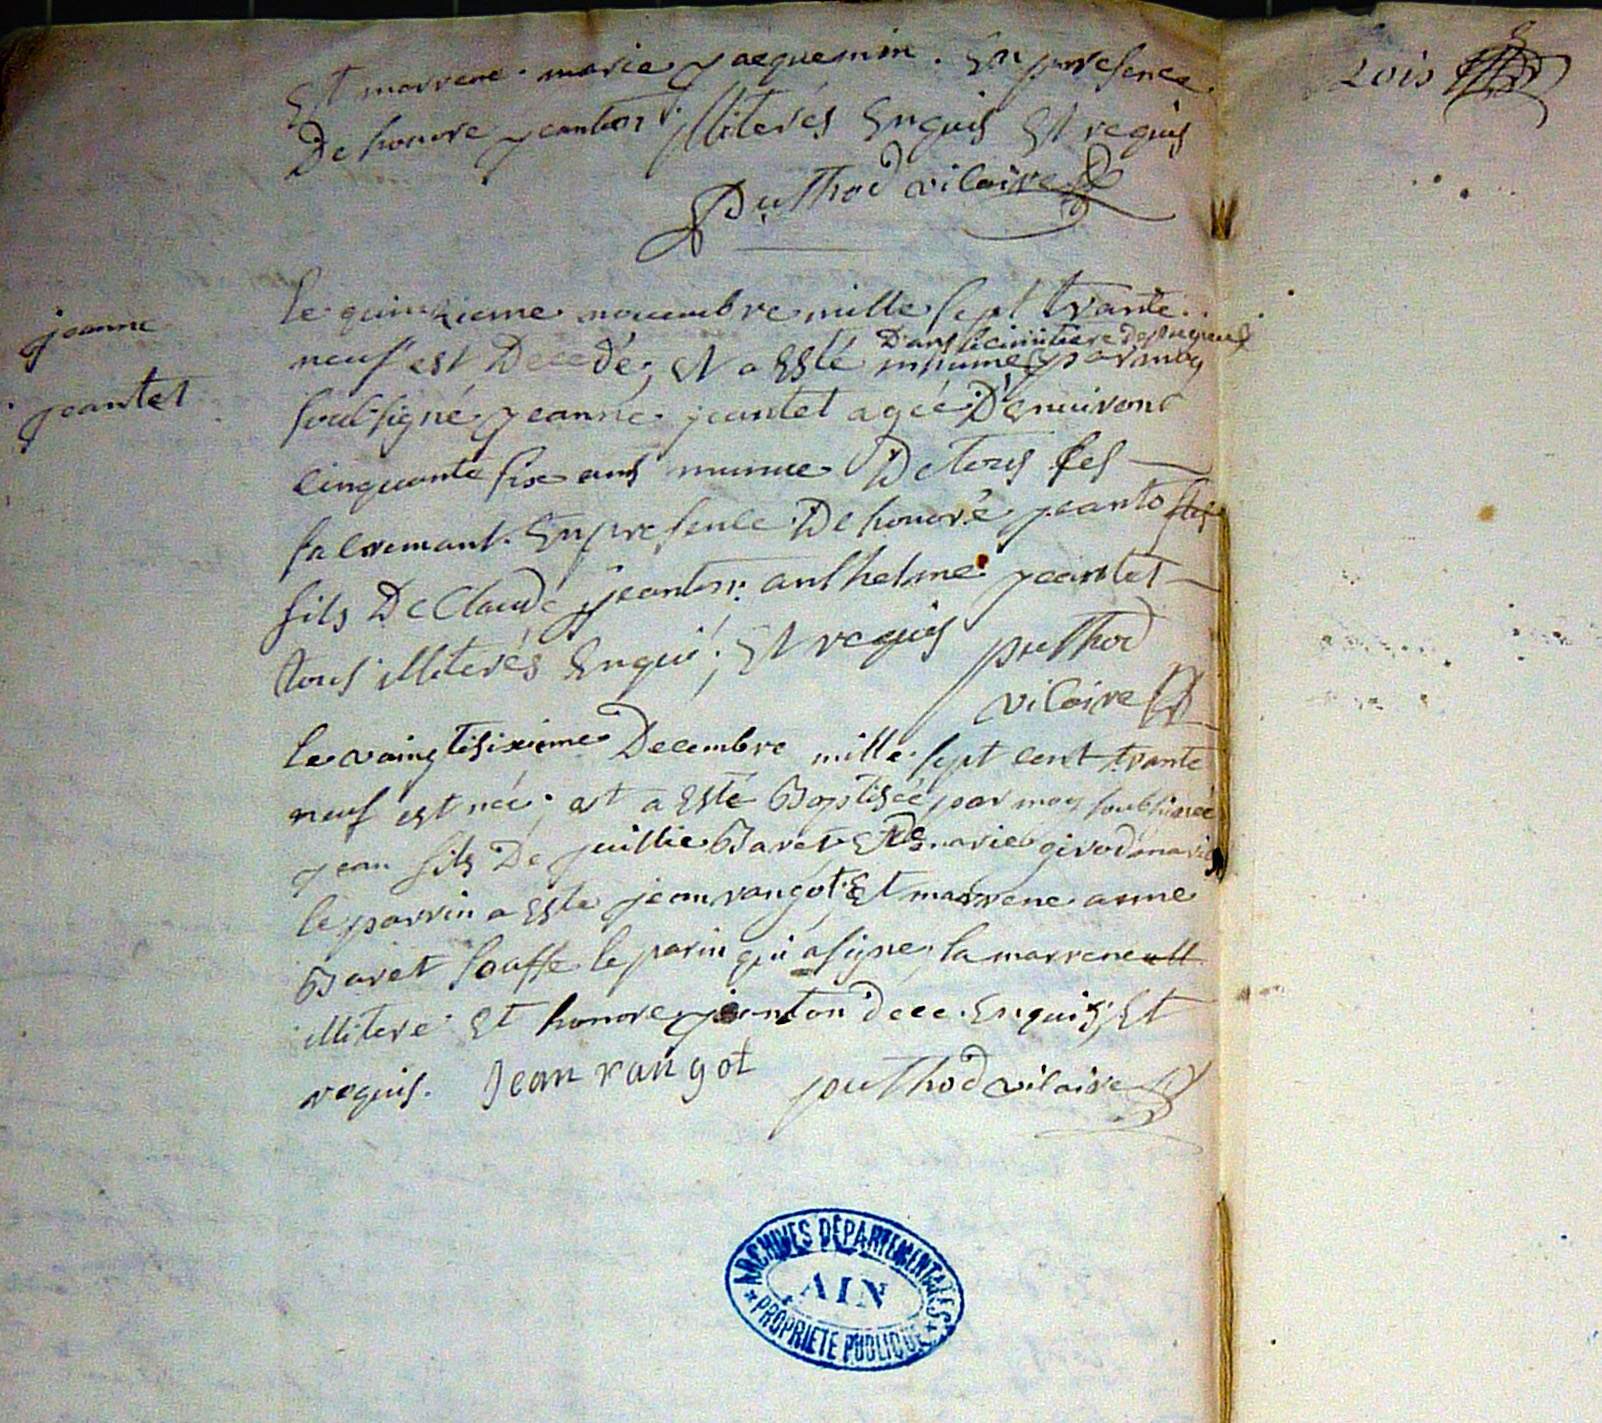 Et marrene marie jacquemin. En presence
De honore jeanton illiterés Enquis Et requis
Puthod vicaire
Lois
le quinzieme nouembre mille sept trante
neuf est Decedé, et a Esté inhumé par moy
Dans le cimitiere de
soubsigné jeanne jeantet agée D'enuiront
jeanne
jeantet
cinquante six ans munie De tous ses
sacremant. En presence De honoré jeanton
fils De Claude jeanton anthelme jeantet
tous illiterés Enqui, Et requis puthod
vicaire
le vaingtisixieme Decembre mille sept cent trante
neuf est née, et a Esté Baptisée par moy soubsigné
jean fils De juillie Baret Et De marie girod mariés
le parrin a Este jean rangot Et marrene anne
Baret sauffe le parin qui a signe, la marrene
illitere Et honore jeanton Enquis, Et
requis. Jean rangot puthod vicaire
ARCHIVES DÉPARTEMENTALES
AIN
* PROPRIÉTÉ PUBLIQUE *